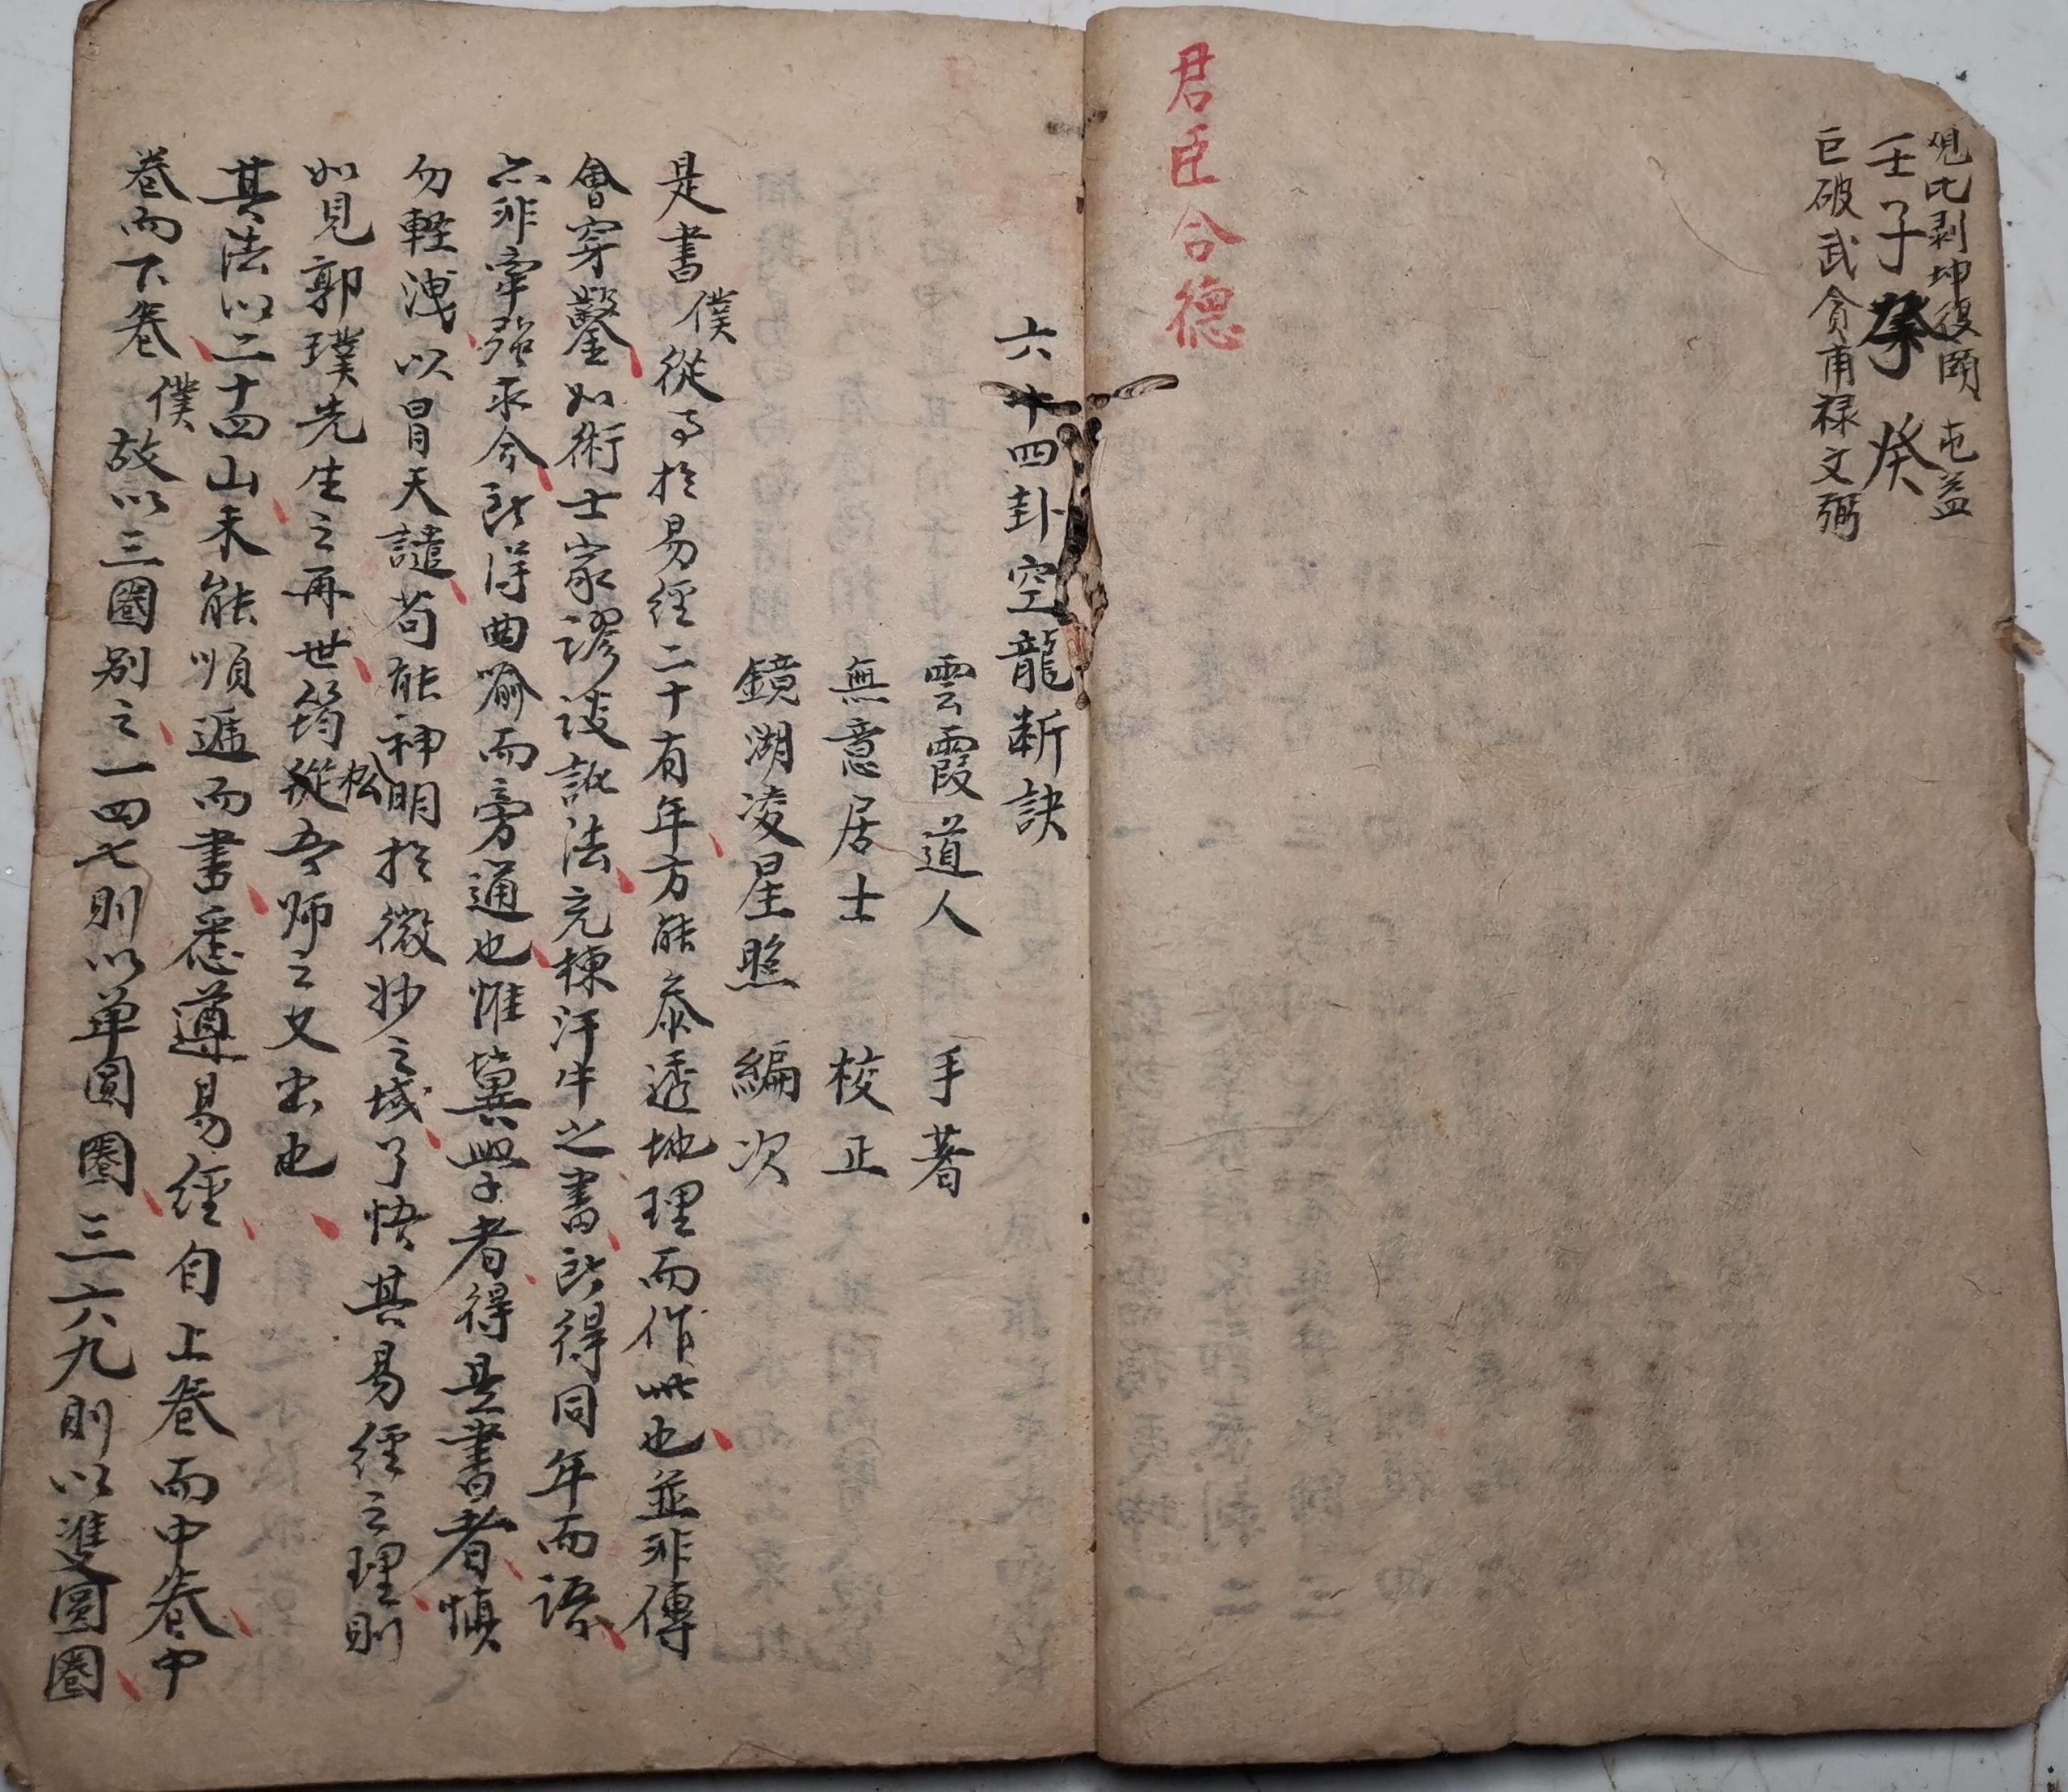 观比剥坤復頤屯益
壬子癸癸
巨破武贪甫禄文弼
君臣合德
六十四卦空龍断訣
雲霞道人 手著
無意居士 校正
鏡湖凌星照 編次
是書僕從事於易經二十有年方能泰透地理而作此也並非傳
會穿鑿如術士家謬談訛法充棟汗牛之書所得同年而語
亦非牽强求合所得曲喻而旁通也惟冀學者得是書者慎
勿輕洩以冒天譴苟能神明於微妙之域了悟其易經之理則
如見郭璞先生之再世筠松從吾师之又出也
其法以二十四山未能順遞而書悉遵易經自上卷而中卷中
卷而下卷僕故以三圈别之一四七則以单圓圈三六九則以雙圓圈